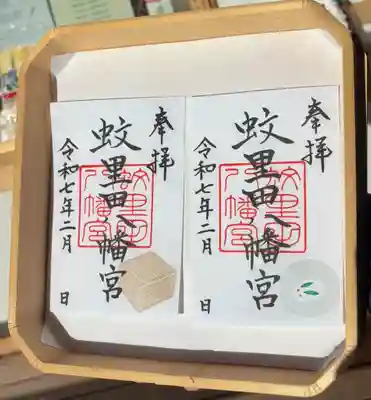 奉拝
蚊里田八幡宮
令和七年二月 日
奉拝
蚊里田八幡宮
令和七年二月 日